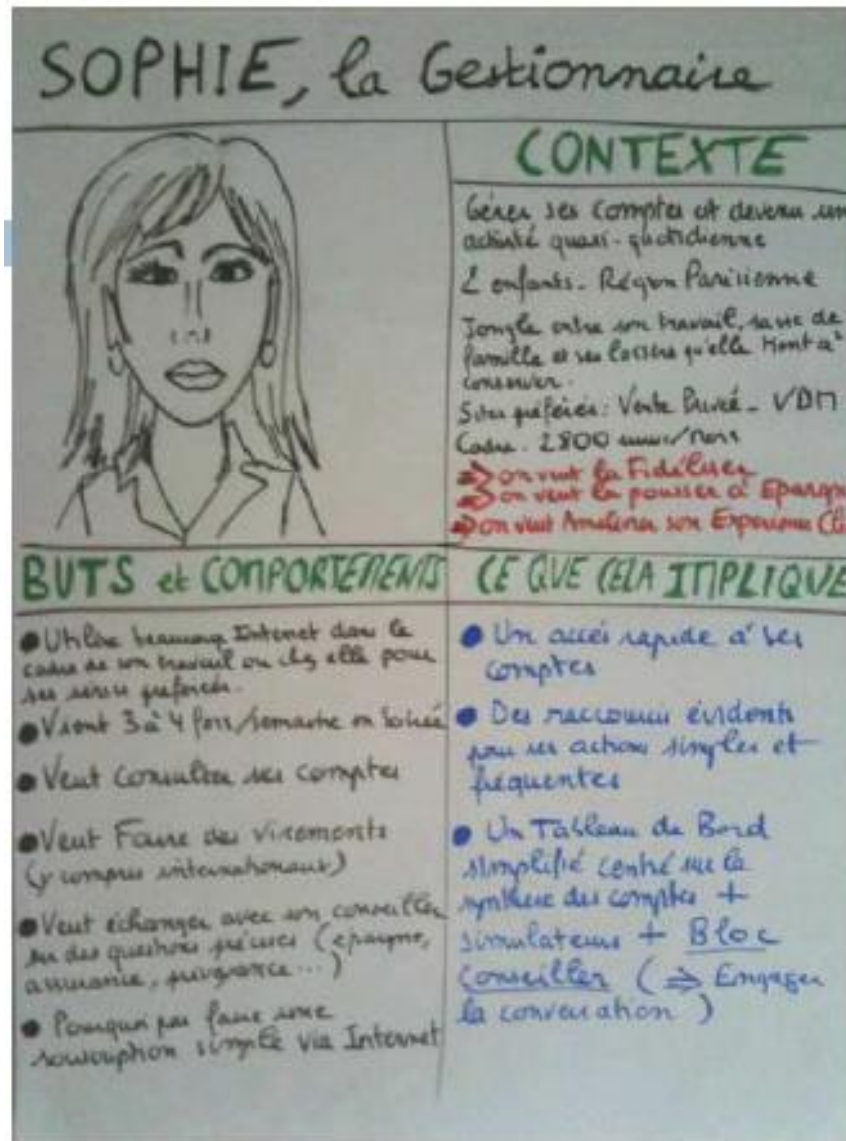 SOPHIE, la Gestionnaire
CONTEXTE
Gérer ses comptes est devenu une
activité quasi-quotidienne
2 enfants - Région Parisienne
Jongle entre son travail, sa vie de
famille et ses loisirs qu'elle tient à
conserver.
Sites préférés : Vente Privée - VDM
Cadre - 2800 euros/mois
⇒ on veut la Fidéliser
⇒ on veut la pousser à Epargn
⇒ on veut Améliorer son Expérience Cli
BUTS et COMPORTEMENTS
● Utilise beaucoup Internet dans le
cadre de son travail ou chez elle pour
ses préférés.
● Vient 3 à 4 fois/semaine en soirée
● Veut consulter ses comptes
● Veut Faire des virements
(y compris internationaux)
● Veut échanger avec son conseiller
sur des questions précises (épargne,
assurance, prévoyance...)
● Pourquoi pas faire une
souscription simple via Internet
CE QUE CELA IMPLIQUE
● Un accès rapide à ses
comptes
● Des raccourcis évidents
pour ses actions simples et
fréquentes
● Un Tableau de Bord
simplifié centré sur la
synthèse des comptes +
simulateurs + Bloc
Conseiller (⇒ Engager
la conversation)